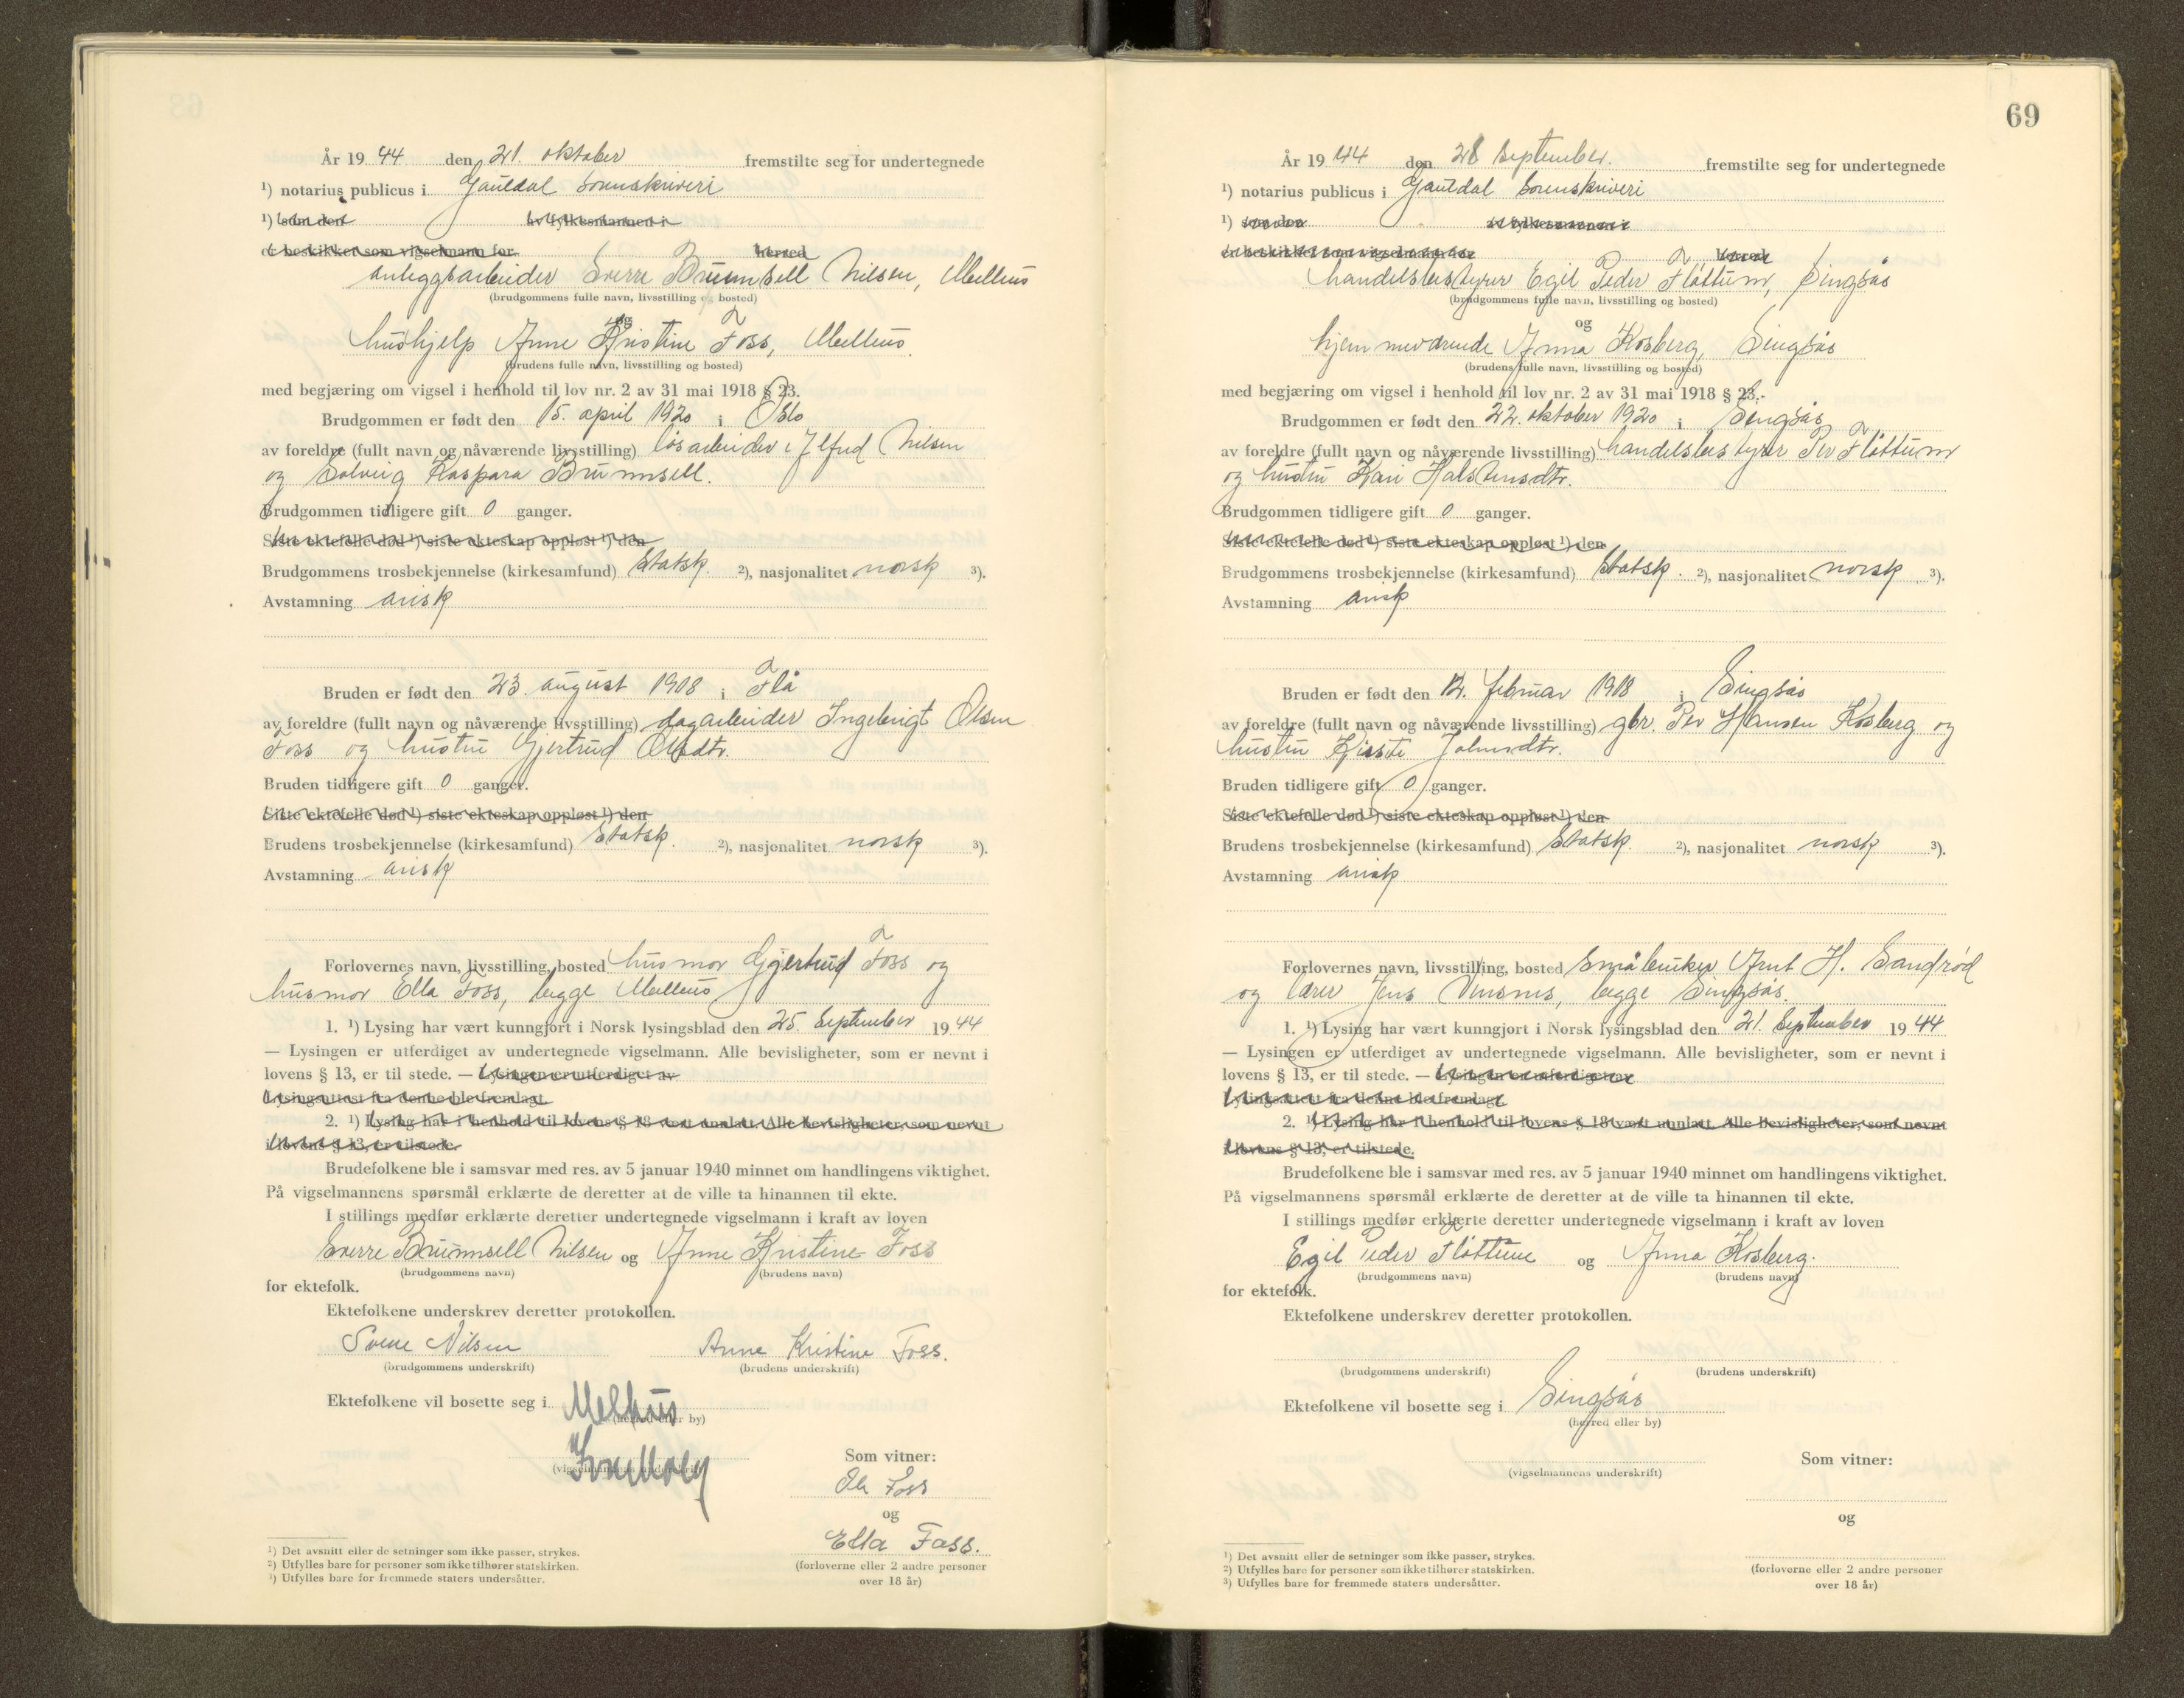 År 19 44 den 21. oktober fremstilte seg for undertegnede
¹) notarius publicus i Gauldal Sorenskriveri
¹) som den av fylkesmannen i
er beskikket som vigselmann for herred
anleggsarbeider Sverre Brunnsell Nilsen, Melhus
(brudgommens fulle navn, livsstilling og bosted)
og
hushjelp Anne Kristine Foss, Melhus.
(brudens fulle navn, livsstilling og bosted)
med begjæring om vigsel i henhold til lov nr. 2 av 31 mai 1918 § 23.
Brudgommen er født den 15. april 1920 i Oslo
av foreldre (fullt navn og nåværende livsstilling) løsarbeider Alfred Nilsen
og Solveig Kaspara Brunnsell.
Brudgommen tidligere gift 0 ganger.
Siste ektefelle død ¹) siste ekteskap oppløst ¹) den
Brudgommens trosbekjennelse (kirkesamfund) Statsk. ²), nasjonalitet norsk ³).
Avstamning arisk
Bruden er født den 23. august 1908 i Flå
av foreldre (fullt navn og nåværende livsstilling) dagarbeider Ingebrigt Olsen
Foss og hustru Gjertrud Olsdtr.
Bruden tidligere gift 0 ganger.
Siste ektefelle død ¹) siste ekteskap oppløst ¹) den
Brudens trosbekjennelse (kirkesamfund) Statsk. ²), nasjonalitet norsk ³).
Avstamning arisk
Forlovernes navn, livsstilling, bosted husmor Gjertrud Foss og
husmor Ella Foss, begge Melhus
1. ¹) Lysing har vært kunngjort i Norsk lysingsblad den 25. september 19 44
— Lysingen er utferdiget av undertegnede vigselmann. Alle bevisligheter, som er nevnt i
lovens § 13, er til stede. — Lysingen er utferdiget av
Lysingsattest fra denne ble fremlagt.
2. ¹) Lysing har i henhold til lovens § 18 vært unnlatt. Alle bevisligheter, som nevnt
i lovens § 13, er tilstede.
Brudefolkene ble i samsvar med res. av 5 januar 1940 minnet om handlingens viktighet.
På vigselmannens spørsmål erklærte de deretter at de ville ta hinannen til ekte.
I stillings medfør erklærte deretter undertegnede vigselmann i kraft av loven
Sverre Brunnsell Nilsen og Anne Kristine Foss
(brudgommens navn) (brudens navn)
for ektefolk.
Ektefolkene underskrev deretter protokollen.
Sverre Nilsen Anne Kristine Foss.
(brudgommens underskrift) (brudens underskrift)
Ektefolkene vil bosette seg i Melhus
(herred eller by)
Som vitner:
(vigselmannens underskrift)
Ole Foss
og
Ella Foss.
(forloverne eller 2 andre personer
over 18 år)
¹) Det avsnitt eller de setninger som ikke passer, strykes.
²) Utfylles bare for personer som ikke tilhører statskirken.
³) Utfylles bare for fremmede staters undersåtter.
69
År 19 44 den september. fremstilte seg for undertegnede
¹) notarius publicus i Gauldal Sorenskriveri
¹) som den av fylkesmannen i
er beskikket som vigselmann for herred
handelsbestyrer Egil Peder Fløttum, Singsås
(brudgommens fulle navn, livsstilling og bosted)
og
hjemmeværende Anna Kosberg, Singsås
(brudens fulle navn, livsstilling og bosted)
med begjæring om vigsel i henhold til lov nr. 2 av 31 mai 1918 § 23.
Brudgommen er født den 22. oktober 1920 i Singsås
av foreldre (fullt navn og nåværende livsstilling) handelsbestyrer Per Fløttum
og hustru Kari Halstensdtr.
Brudgommen tidligere gift 0 ganger.
Siste ektefelle død ¹) siste ekteskap oppløst ¹) den
Brudgommens trosbekjennelse (kirkesamfund) Statsk. ²), nasjonalitet norsk ³).
Avstamning arisk
Bruden er født den 12. februar 1918 i Singsås
av foreldre (fullt navn og nåværende livsstilling) gbr. Per Hansen Kosberg og
hustru Kirsti Johnsdtr.
Bruden tidligere gift 0 ganger.
Siste ektefelle død ¹) siste ekteskap oppløst ¹) den
Brudens trosbekjennelse (kirkesamfund) Statsk. ²), nasjonalitet norsk ³).
Avstamning arisk
Forlovernes navn, livsstilling, bosted småbruker Arnt H. Sandrød
og lærer Jens begge Singsås.
1. ¹) Lysing har vært kunngjort i Norsk lysingsblad den 21. september 19 44
— Lysingen er utferdiget av undertegnede vigselmann. Alle bevisligheter, som er nevnt i
lovens § 13, er til stede. — Lysingen er utferdiget av
Lysingsattest fra denne ble fremlagt.
2. ¹) Lysing har i henhold til lovens § 18 vært unnlatt. Alle bevisligheter, som nevnt
i lovens § 13, er tilstede.
Brudefolkene ble i samsvar med res. av 5 januar 1940 minnet om handlingens viktighet.
På vigselmannens spørsmål erklærte de deretter at de ville ta hinannen til ekte.
I stillings medfør erklærte deretter undertegnede vigselmann i kraft av loven
Egil Peder Fløttum og Anna Kosberg.
(brudgommens navn) (brudens navn)
for ektefolk.
Ektefolkene underskrev deretter protokollen.
(brudgommens underskrift) (brudens underskrift)
Ektefolkene vil bosette seg i Singsås
(herred eller by)
Som vitner:
(vigselmannens underskrift)
og
(forloverne eller 2 andre personer
over 18 år)
¹) Det avsnitt eller de setninger som ikke passer, strykes.
²) Utfylles bare for personer som ikke tilhører statskirken.
³) Utfylles bare for fremmede staters undersåtter.